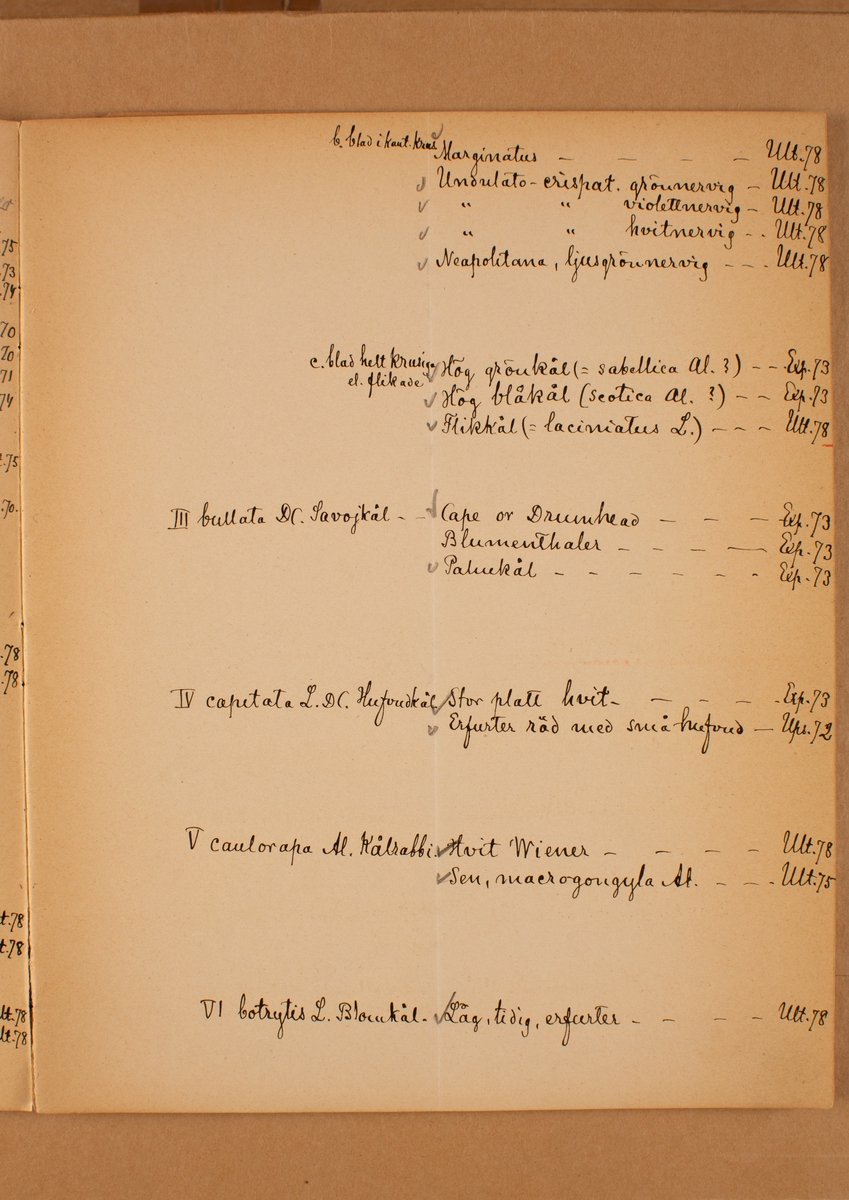 b. blad i kant. krus. Marginatus — — — — Ult. 78
Undulato-crispat. grönnervig — Ult. 78
" " violettnervig — Ult. 78
" " hvitnervig - - Ult. 78
Neapolitana, ljusgrönnervig - - - Ult. 78
c. blad helt krusiga Hög grönkål (= sabellica Al. ?) - - Exp. 73
el. flikade
Hög blåkål (scotica Al. ?) - - Exp. 73
Flikkål (= laciniatus L.) - - - Ult. 78
III bullata DC. Savojkål - - Cape or Drumhead — — — Exp. 73
Blumenthaler - - - — Exp. 73
Palmkål - - - - - - Exp. 73
IV capitata L. DC. Hufvudkål Stor platt hvit - — - - - Exp. 73
Erfurter röd med små hufvud — Ups. 72
V caulorapa Al. Kålrabbi. Hvit Wiener - - - - Ult. 78
Sen, macrogongyla Al. - - - Ult. 75
VI botrytis L. Blomkål - Låg, tidig, erfurter - - - - Ult. 78
75
73
74
70
70
71
74
.75
70.
.78
.78
t.78
t.78
lt.78
lt.78